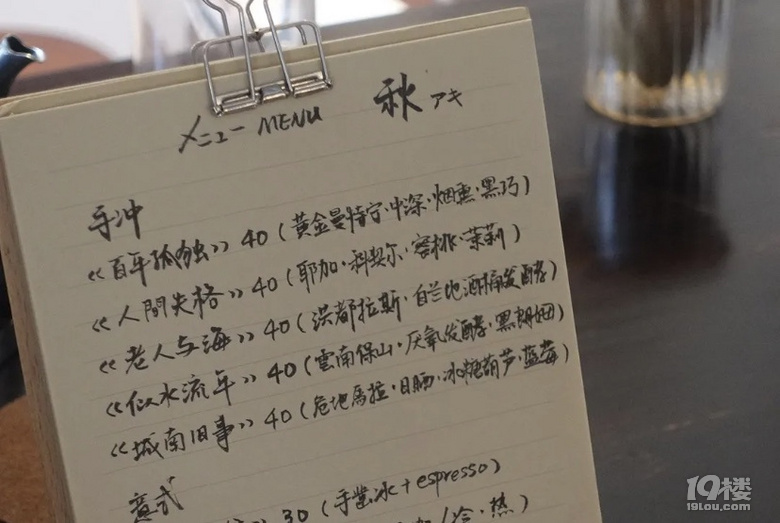 メニュー MENU 秋 アキ
手冲
《百年孤独》 40 (黄金曼特宁·中深·烟熏·黑巧)
《人間失格》 40 (耶加·科契尔·蜜桃·茉莉)
《老人与海》 40 (洪都拉斯·白兰地酒桶发酵)
《似水流年》 40 (雲南保山·厌氧发酵·黑朗姆)
《城南旧事》 40 (危地馬拉·日晒·冰糖葫芦蓝莓)
意式
30 (手凿冰+espresso)
/冷·热)
19楼
19lou.com